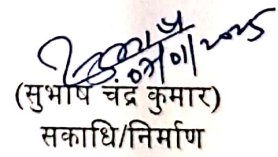 07/01/2025
(सुभाष चंद्र कुमार)
सकाधि/निर्माण